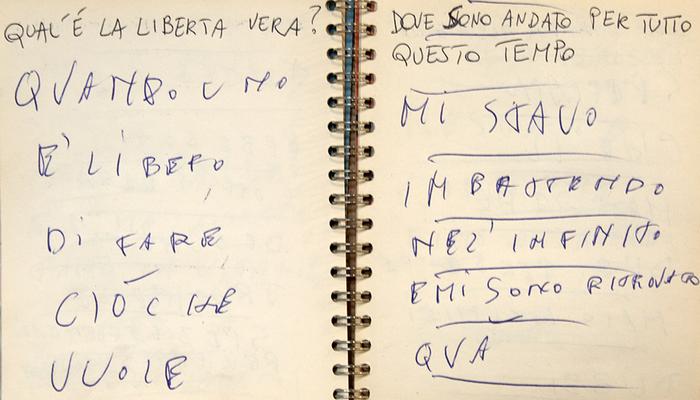 QUAL'È LA LIBERTA VERA?
QVANDO UNO
E' LIBERO
DI FARE
CIÒ CHE
VUOLE
DOVE SONO ANDATO PER TUTTO
QUESTO TEMPO
MI STAVO
IMBASTENDO
NEL' INFINITO
E MI SONO RITROVATO
QVA